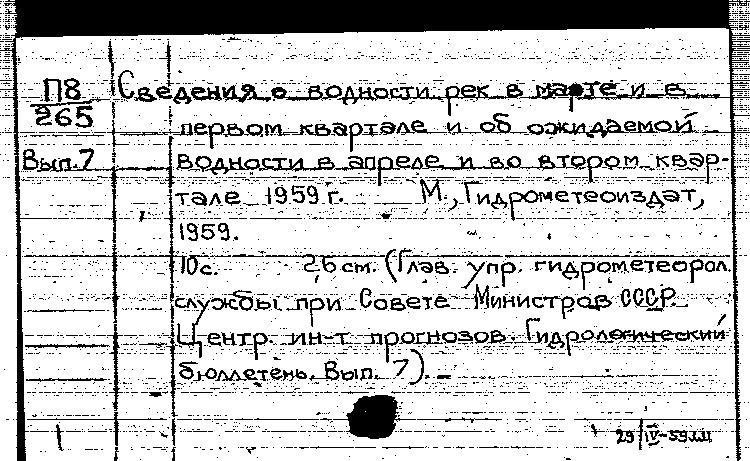 П8
265
Вып.7
Сведения о водности рек в марте и в
первом квартале и об ожидаемой
водности в апреле и во втором квар-
тале 1959 г. М., Гидрометеоиздат,
1959.
10с. 26 см. (Глав. упр. гидрометеорол.
службы при Совете Министров СССР.
Центр. ин-т прогнозов. Гидрологический
бюллетень. Вып. 7).
29/IV-59